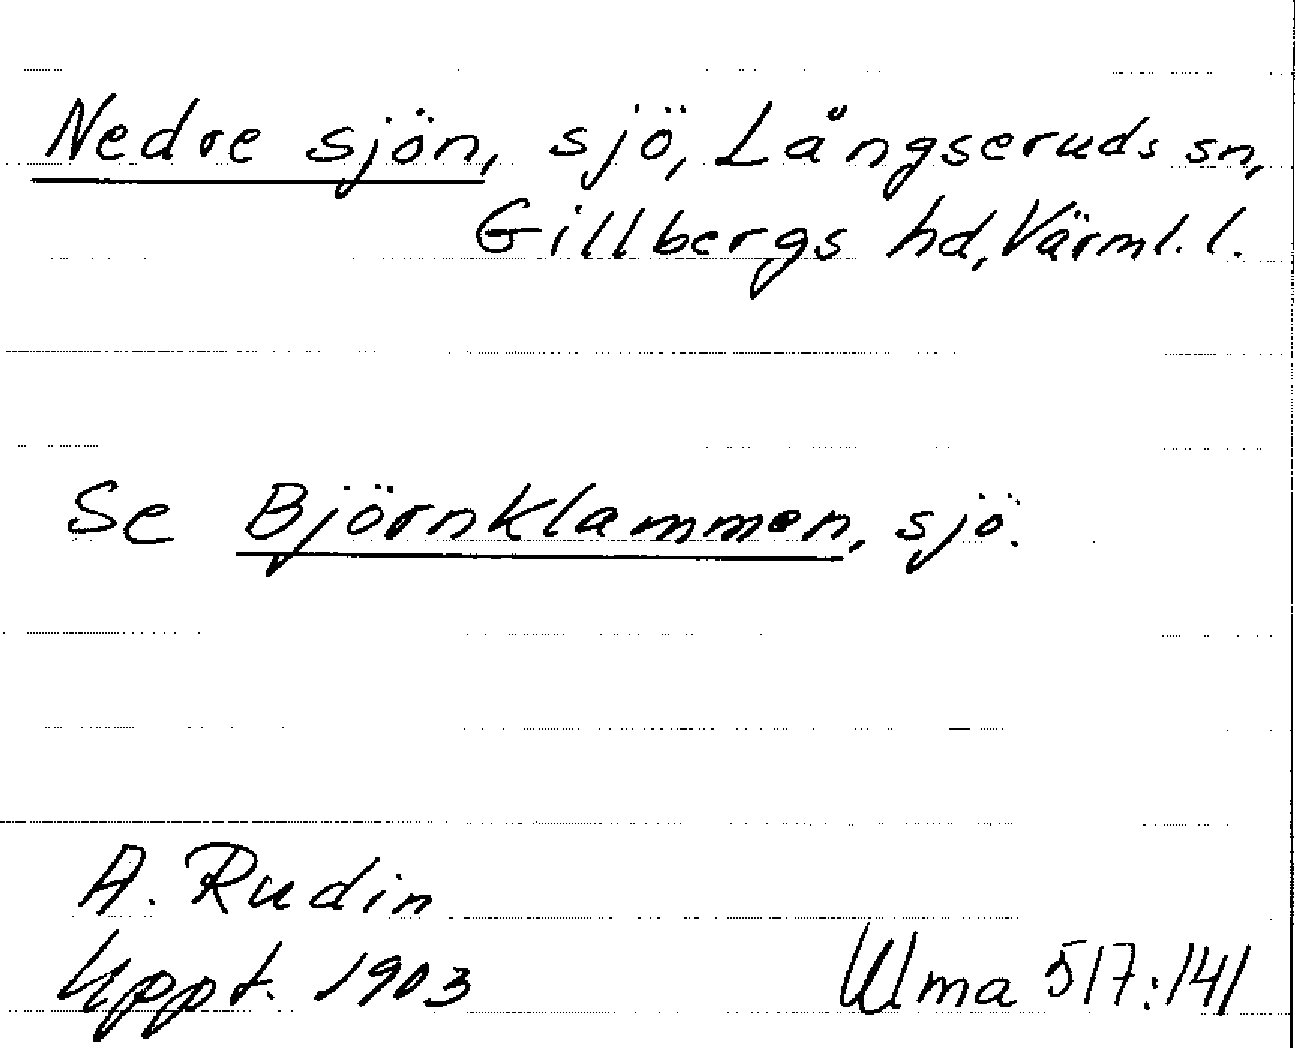 Nedre sjön, sjö, Långseruds sn,
Gillbergs hd, Värml. l.
Se Björnklammen, sjö.
A. Rudin
Uppt. 1903
Ulma 517:141